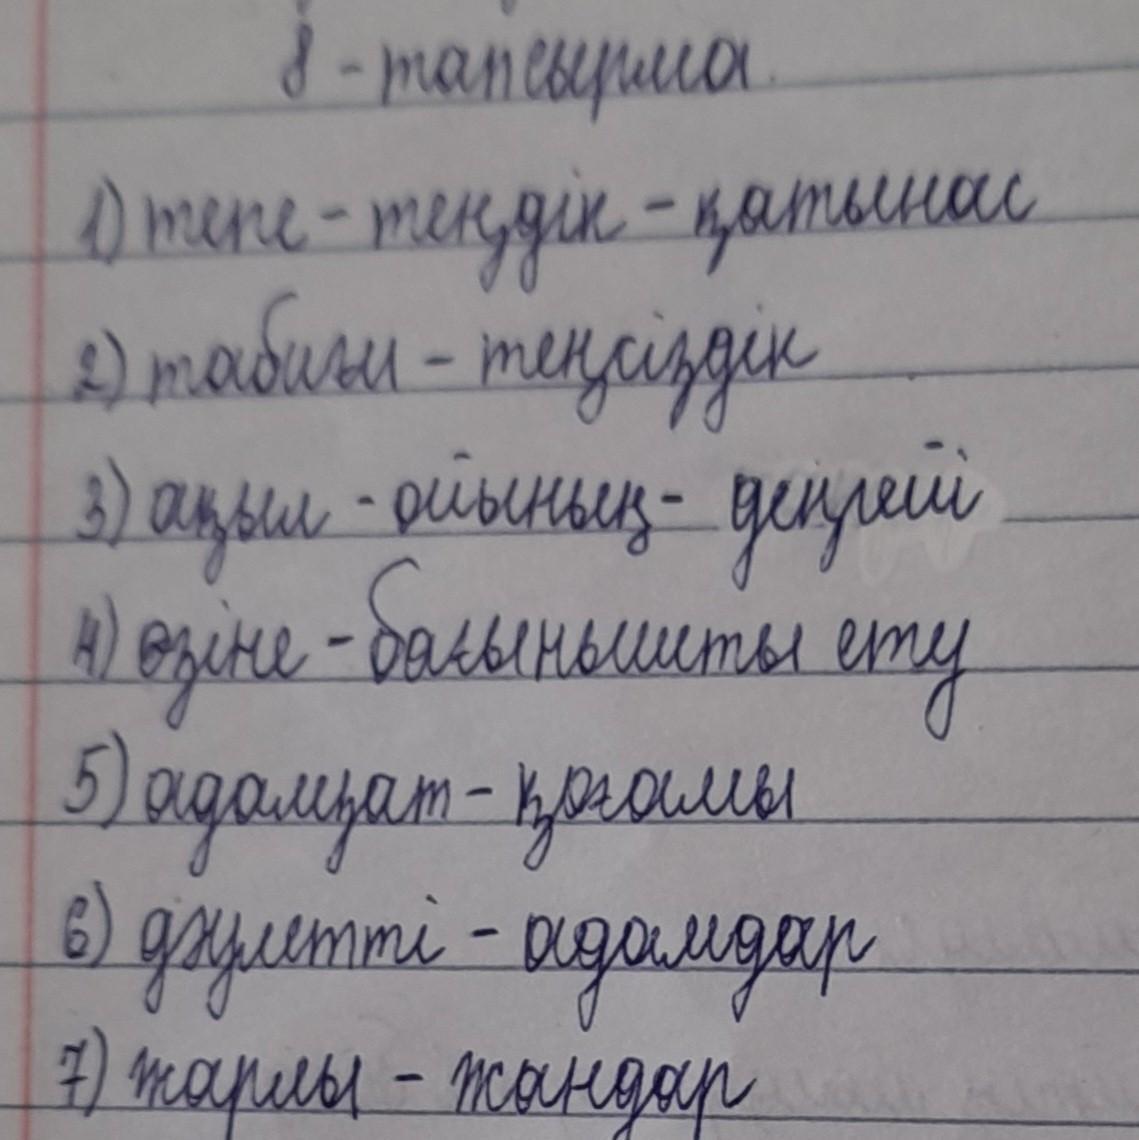 8 - тапсырма.
1) тепе - теңдік - қатынас
2) табиғи - теңсіздік
3) ақыл - ойының - деңгейі
4) өзіне - бағынышты ету
5) адамзат - қоғамы
6) дәулетті - адамдар
7) жарлы - жандар